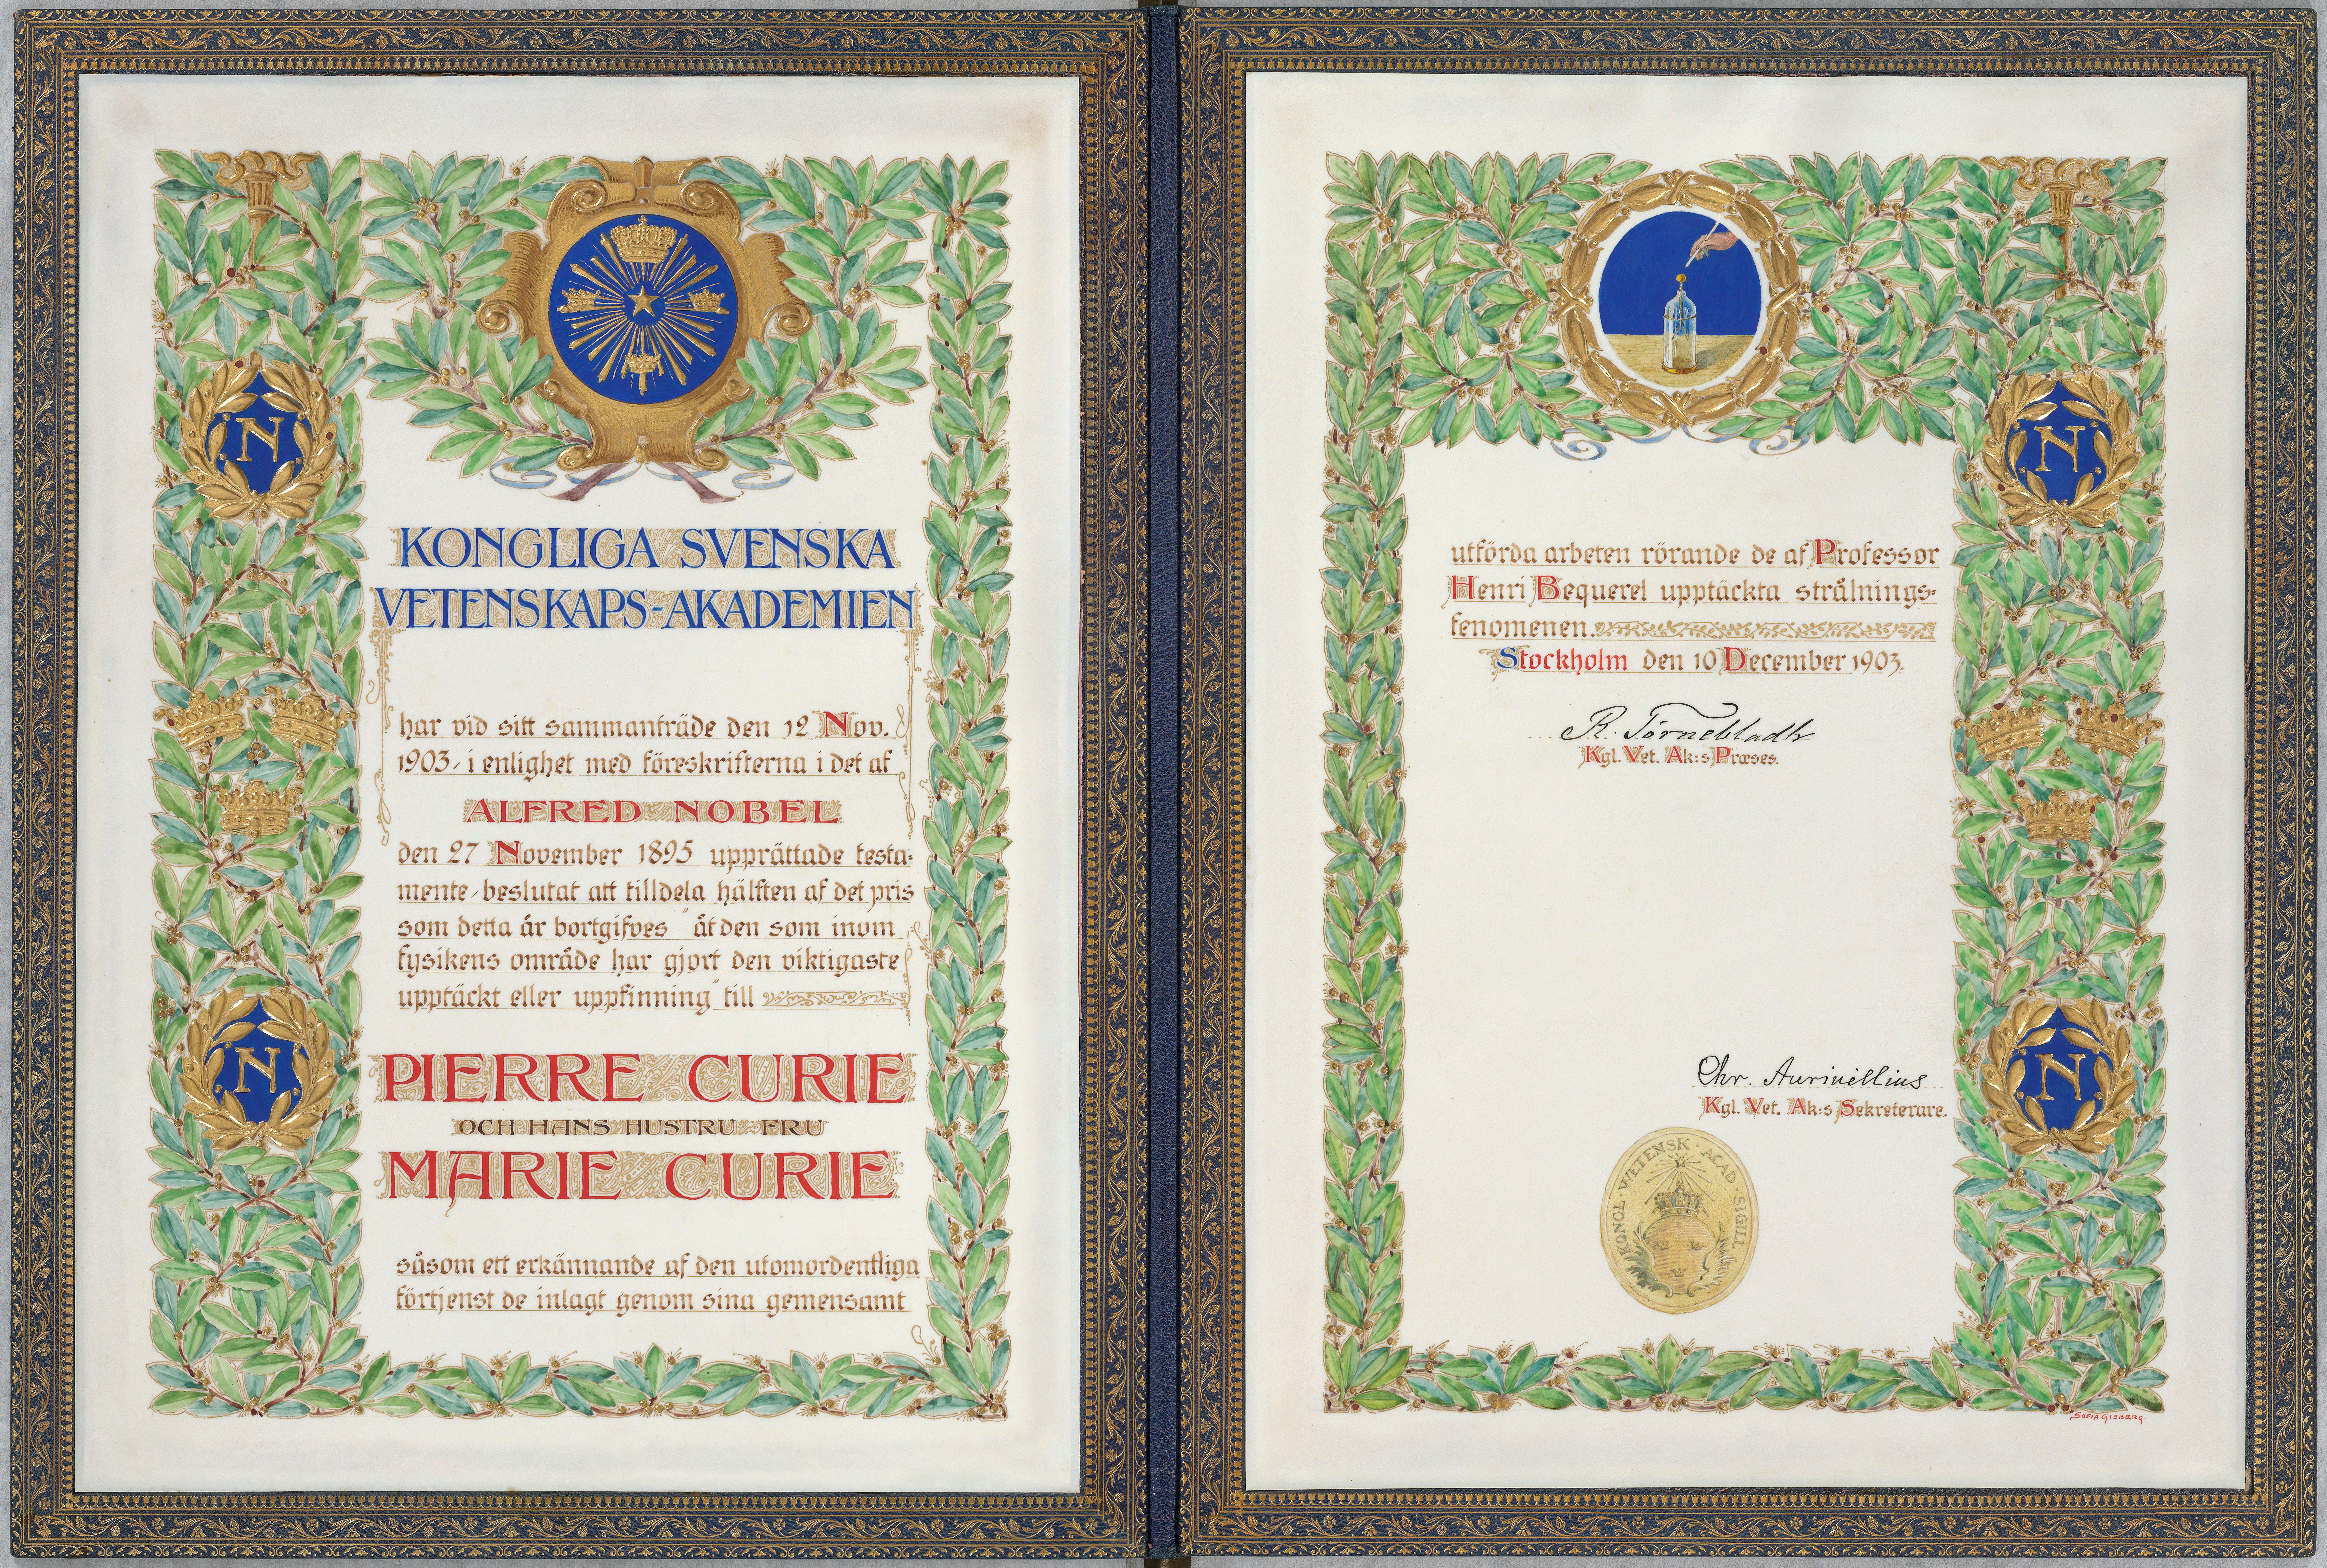 KONGLIGA SVENSKA
VETENSKAPS-AKADEMIEN
har vid sitt sammanträde den 12 Nov.
1903, i enlighet med föreskrifterna i det af
ALFRED NOBEL
den 27 November 1895 upprättade testa-
mente, beslutat att tilldela hälften af det pris
som detta år bortgifves "åt den som inom
fysikens område har gjort den viktigaste
upptäckt eller uppfinning" till
PIERRE CURIE
OCH HANS HUSTRU FRU
MARIE CURIE
såsom ett erkännande af den utomordentliga
förtjenst de inlagt genom sina gemensamt
N
N
utförda arbeten rörande de af Professor
Henri Bequerel upptäckta strålnings-
fenomenen.
Stockholm den 10 December 1903.
R. Törnebladh
Kgl. Vet. Ak:s Præses.
Chr. Aurivillius
Kgl. Vet. Ak:s Sekreterare.
KONGL. VETENSK. ACAD. SIGILL
N
N
SOFIA GISBERG